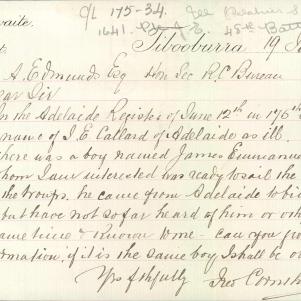 waite.
C/L 175-34.
1641.
45th Batt
Tibooburra 19 J
A. Edmunds Esq Hon Sec R.C. Bureau
ear Sir
In the Adelaide Register of June 12th in 176th
name of J. E. Callard of Adelaide as ill.
here was a boy named James Emmanue
hom I am interested was ready to sail the
the troops. he came from Adelaide to
but have not so far heard of him or oth
ame time & Known to me - can you gi
ormation, if it is the same boy I shall be o
Yrs faithfully